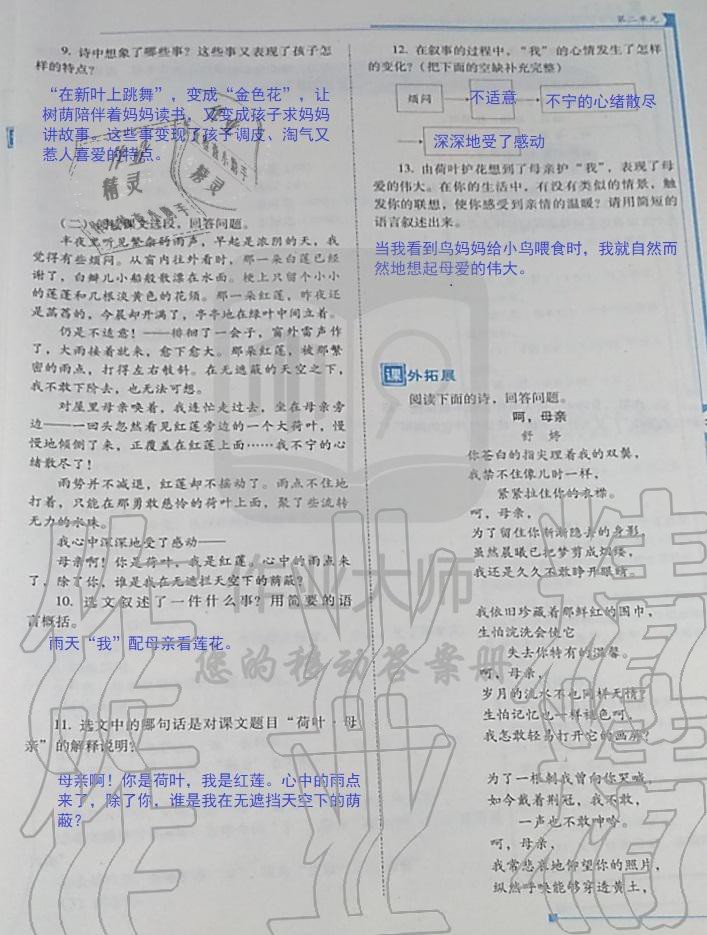 第二单元
9. 诗中想象了哪些事？这些事又表现了孩子怎
样的特点？
“在新叶上跳舞”，变成“金色花”，让
树荫陪伴着妈妈读书、又变成孩子求妈妈
讲故事。这些事变现了孩子调皮、淘气又
惹人喜爱的特点。
(二) 阅读课文选段，回答问题。
半夜里听见繁杂的雨声，早起是浓阴的天，我
觉得有些烦闷。从窗内往外看时，那一朵白莲已经
谢了，白瓣儿小船般散漂在水面。梗上只留个小小
的莲蓬和几根淡黄色的花须。那一朵红莲，昨夜还
是菡萏的，今晨却开满了，亭亭地在绿叶中间立着。
仍是不适意！——徘徊了一会子，窗外雷声作
了，大雨接着就来，愈下愈大。那朵红莲，被那繁
密的雨点，打得左右攲斜。在无遮蔽的天空之下，
我不敢下阶去，也无法可想。
对屋里母亲唤着，我连忙走过去，坐在母亲旁
边——一回头忽然看见红莲旁边的一个大荷叶，慢
慢地倾侧了来，正覆盖在红莲上面……我不宁的心
绪散尽了！
雨势并不减退，红莲却不摇动了。雨点不住地
打着，只能在那勇敢慈怜的荷叶上面，聚了些流转
无力的水珠。
我心中深深地受了感动——
母亲啊！你是荷叶，我是红莲。心中的雨点来
了，除了你，谁是我在无遮拦天空下的荫蔽？
10. 选文叙述了一件什么事？用简要的语
言概括。
雨天“我”配母亲看莲花。
11. 选文中的哪句话是对课文题目“荷叶·母
亲”的解释说明？
母亲啊！你是荷叶，我是红莲。心中的雨点
来了，除了你，谁是我在无遮挡天空下的荫
蔽？
12. 在叙事的过程中，“我”的心情发生了怎样
的变化？（把下面的空缺补充完整）
烦闷
不适意
不宁的心绪散尽
深深地受了感动
13. 由荷叶护花想到了母亲护“我”，表现了母
爱的伟大。在你的生活中，有没有类似的情景，触
发你的联想，使你感受到亲情的温暖？请用简短的
语言叙述出来。
当我看到鸟妈妈给小鸟喂食时，我就自然而
然地想起母爱的伟大。
课外拓展
阅读下面的诗，回答问题。
呵，母亲
舒 婷
你苍白的指尖理着我的双鬓，
我禁不住像儿时一样，
紧紧拉住你的衣襟。
呵，母亲，
为了留住你渐渐隐去的身影，
虽然晨曦已把梦剪成烟缕，
我还是久久不敢睁开眼睛。
我依旧珍藏着那鲜红的围巾，
生怕浣洗会使它
失去你特有的温馨。
呵，母亲，
岁月的流水不也同样无情？
生怕记忆也一样褪色呵，
我怎敢轻易打开它的画屏？
为了一根刺我曾向你哭喊，
如今戴着荆冠，我不敢，
一声也不敢呻吟。
呵，母亲，
我常悲哀地仰望你的照片，
纵然呼唤能够穿透黄土，
作业大师
您的移动答案册
作业精灵
作业精灵